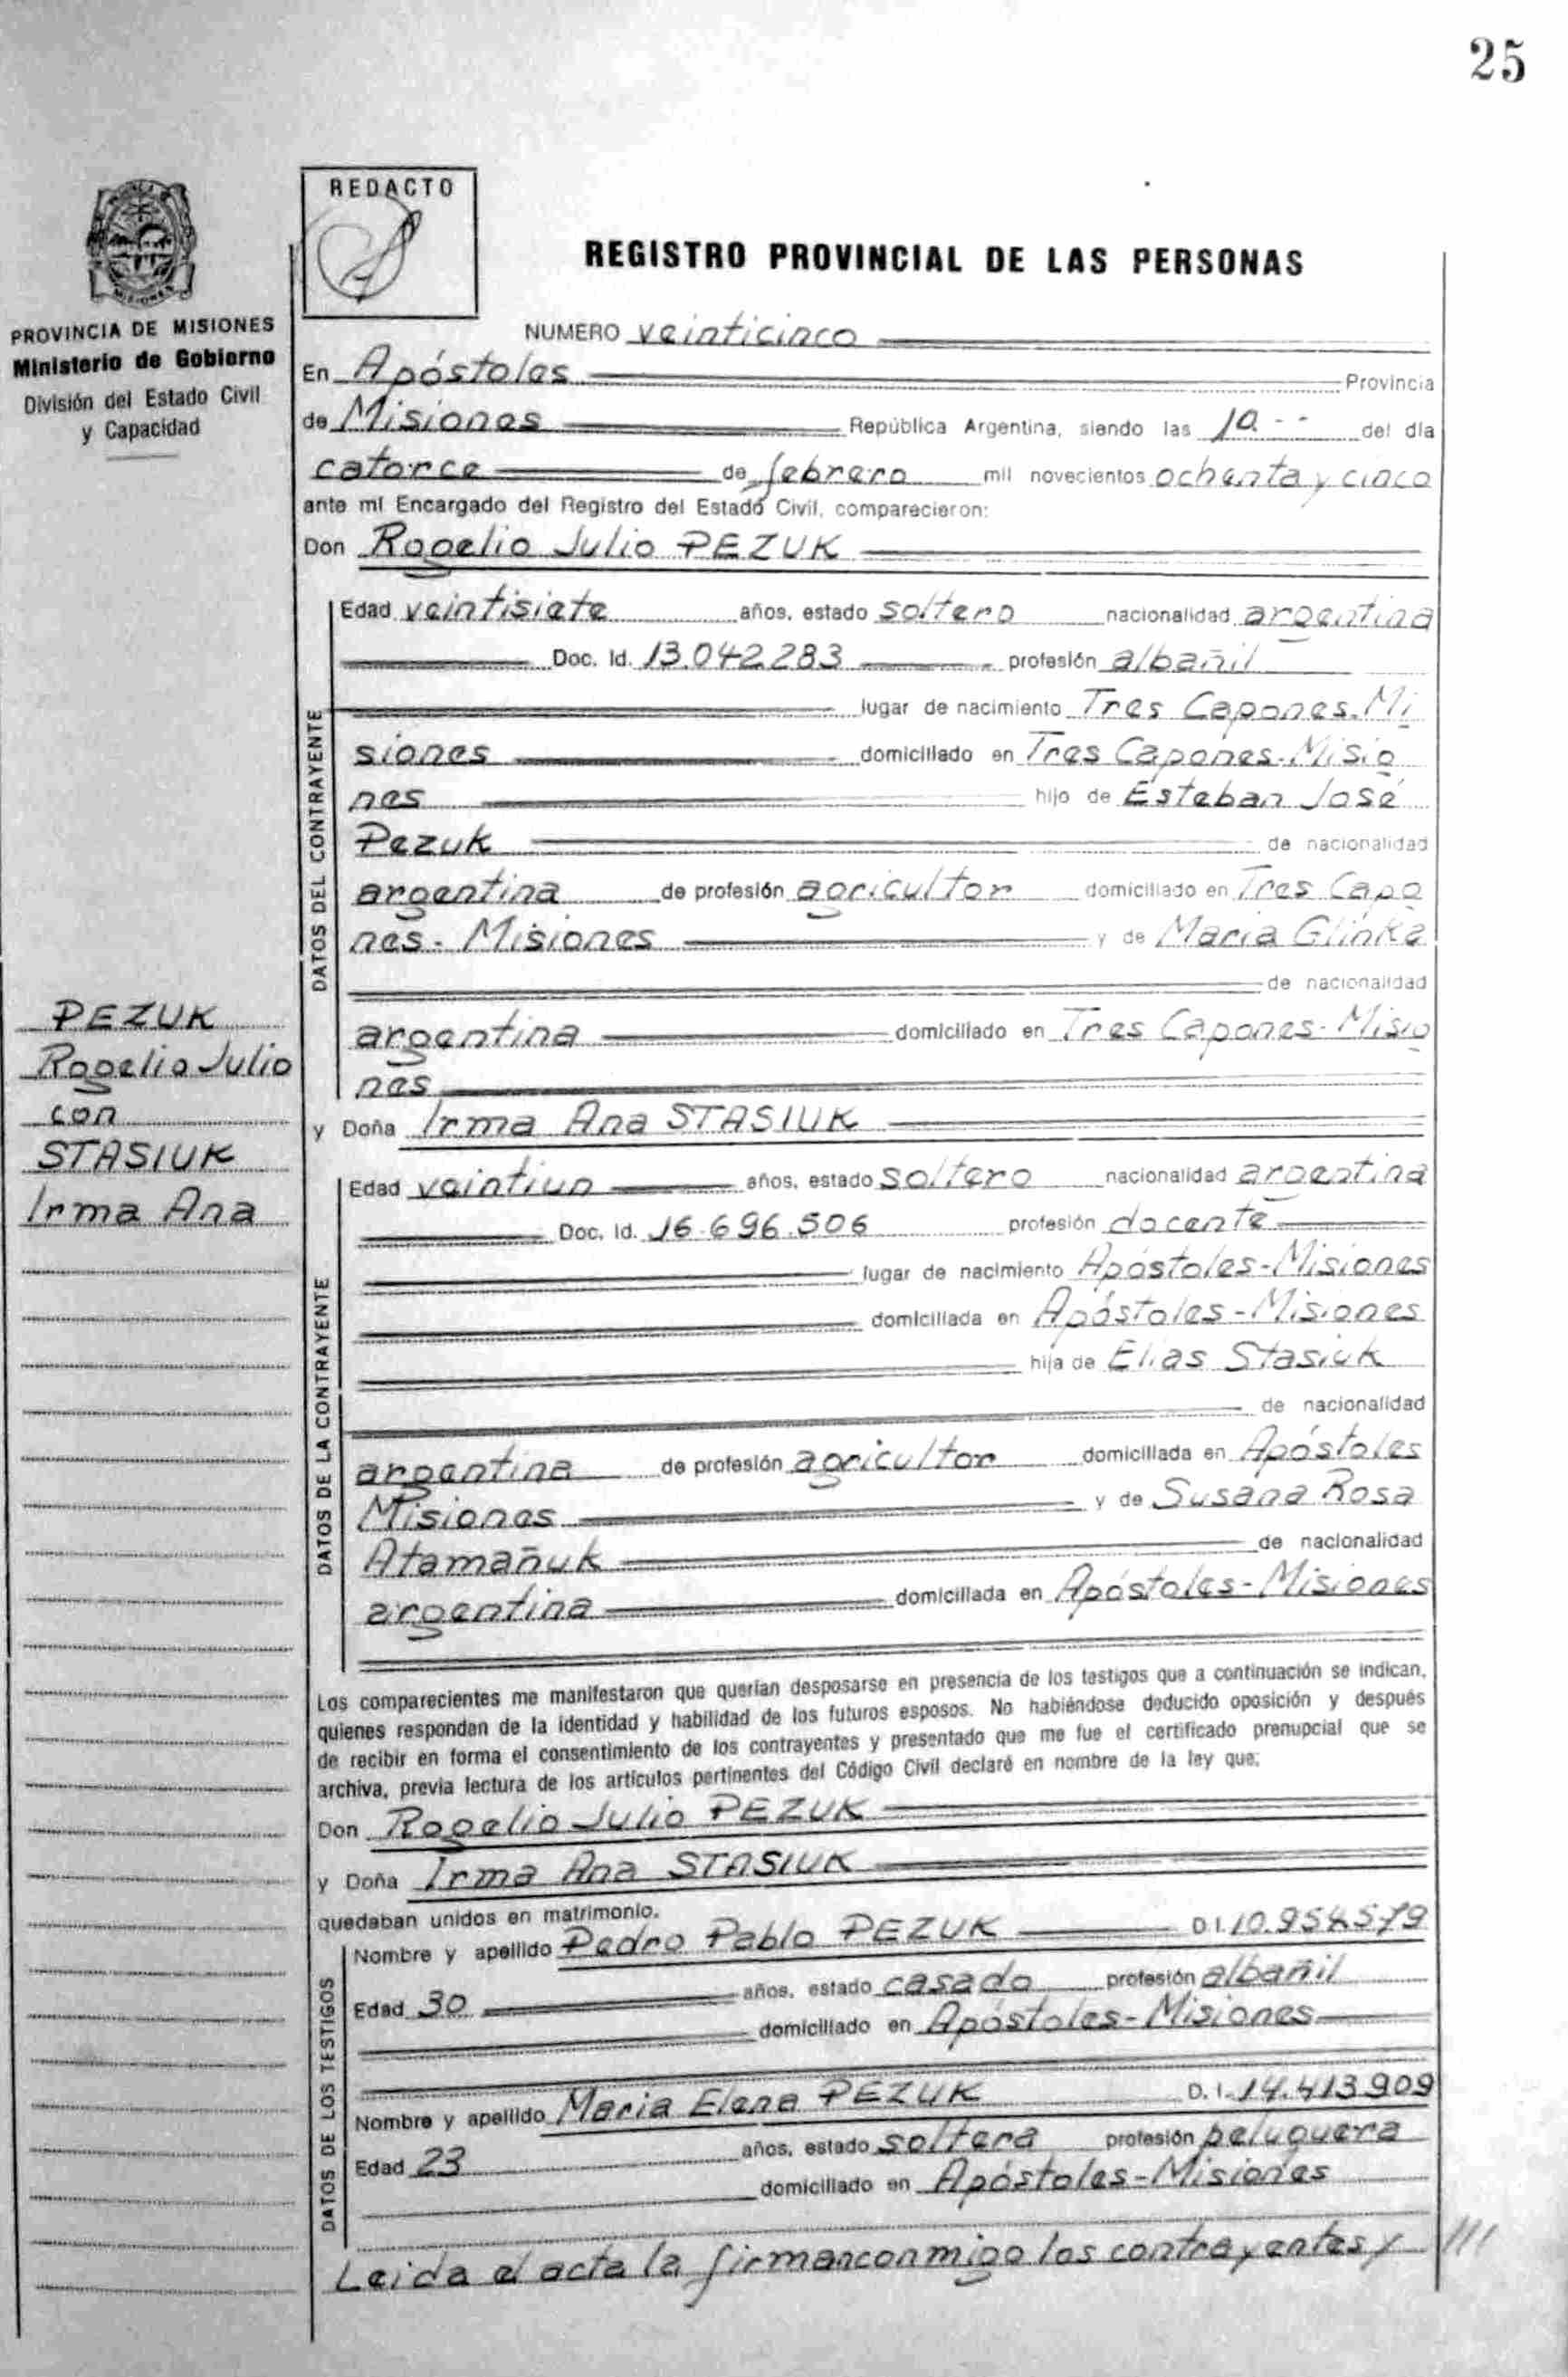 25
REDACTO
REGISTRO PROVINCIAL DE LAS PERSONAS
PROVINCIA DE MISIONES
Ministerio de Gobierno
División del Estado Civil
y Capacidad
MISIONES
NUMERO veinticinco
En Apóstoles Provincia
de Misiones República Argentina, siendo las 10 - - del día
catorce de febrero mil novecientos ochenta y cinco
ante mí Encargado del Registro del Estado Civil, comparecieron:
Don Rogelio Julio PEZUK
DATOS DEL CONTRAYENTE
Edad veintisiete años, estado soltero nacionalidad argentina
Doc. Id. 13.042.283 profesión albañil
lugar de nacimiento Tres Capones. Mi
siones domiciliado en Tres Capones-Misio
nes hijo de Esteban José
Pezuk de nacionalidad
argentina de profesión agricultor domiciliado en Tres Capo
nes - Misiones y de Maria Glinka
de nacionalidad
argentina domiciliado en Tres Capones-Misio
nes
PEZUK
Rogelio Julio
con
STASIUK
Irma Ana
y Doña Irma Ana STASIUK
DATOS DE LA CONTRAYENTE
Edad veintiun años, estado soltero nacionalidad argentina
Doc. Id. 16.696.506 profesión docente
lugar de nacimiento Apóstoles-Misiones
domiciliada en Apóstoles-Misiones
hija de Elias Stasiuk
de nacionalidad
argentina de profesión agricultor domiciliada en Apóstoles
Misiones y de Susana Rosa
Atamañuk de nacionalidad
argentina domiciliada en Apóstoles-Misiones
Los comparecientes me manifestaron que querían desposarse en presencia de los testigos que a continuación se indican,
quienes responden de la identidad y habilidad de los futuros esposos. No habiéndose deducido oposición y después
de recibir en forma el consentimiento de los contrayentes y presentado que me fue el certificado prenupcial que se
archiva, previa lectura de los artículos pertinentes del Código Civil declaré en nombre de la ley que:
Don Rogelio Julio PEZUK
y Doña Irma Ana STASIUK
quedaban unidos en matrimonio.
DATOS DE LOS TESTIGOS
Nombre y apellido Pedro Pablo PEZUK D.I. 10.954.579
Edad 30 años, estado casado profesión albañil
domiciliado en Apóstoles-Misiones
Nombre y apellido Maria Elena PEZUK D.I. 14.413.909
Edad 23 años, estado soltera profesión peluquera
domiciliado en Apóstoles-Misiones
Leida el acta la firman conmigo los contrayentes y ///